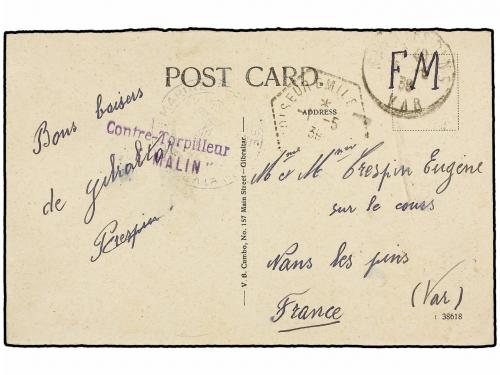 POST CARD.
FM
ADDRESS
VAR
Contre-Torpilleur
"MALIN"
Bons baisers
de Gibraltar
Crespin
Mme et Mr Crespin Eugène
sur le cours
Nans les pins
(Var)
France
V. B. Cumbo, No. 157 Main Street—Gibraltar.
38618